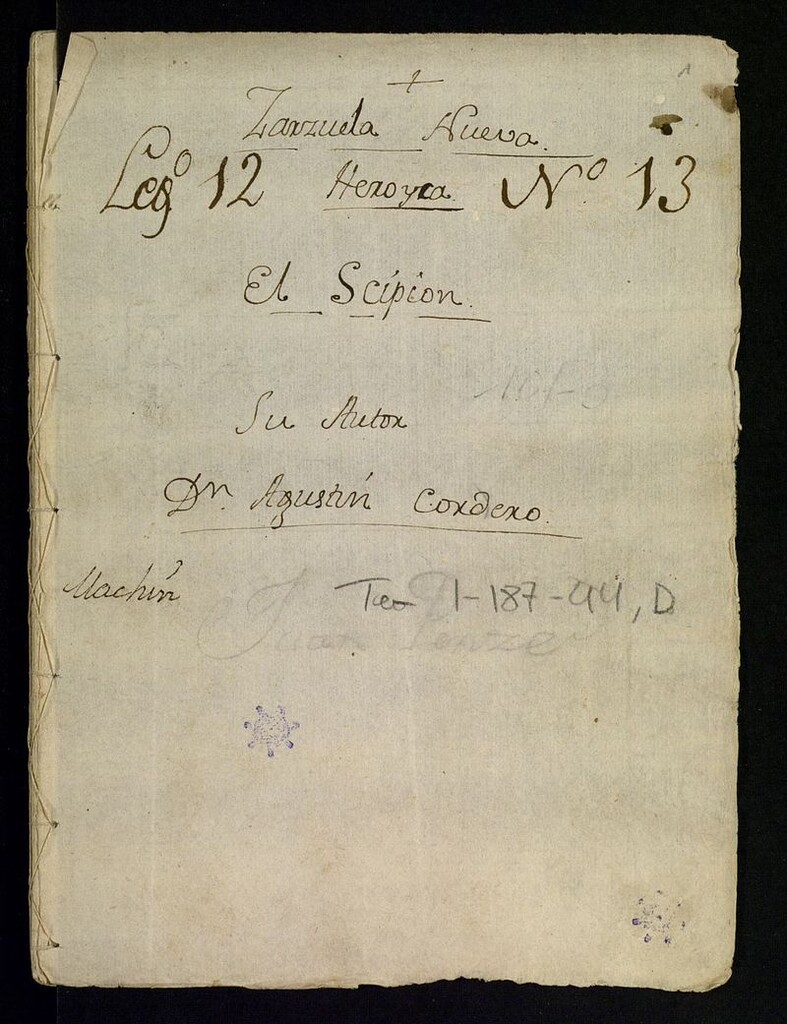 1
+
Zarzuela Nueva.
Leg.º 12 Heroyca Nº. 13
El Scipion.
Su Autor
Dn. Agustín Cordero.
Machín
Tea 1-187-44, D
Juan